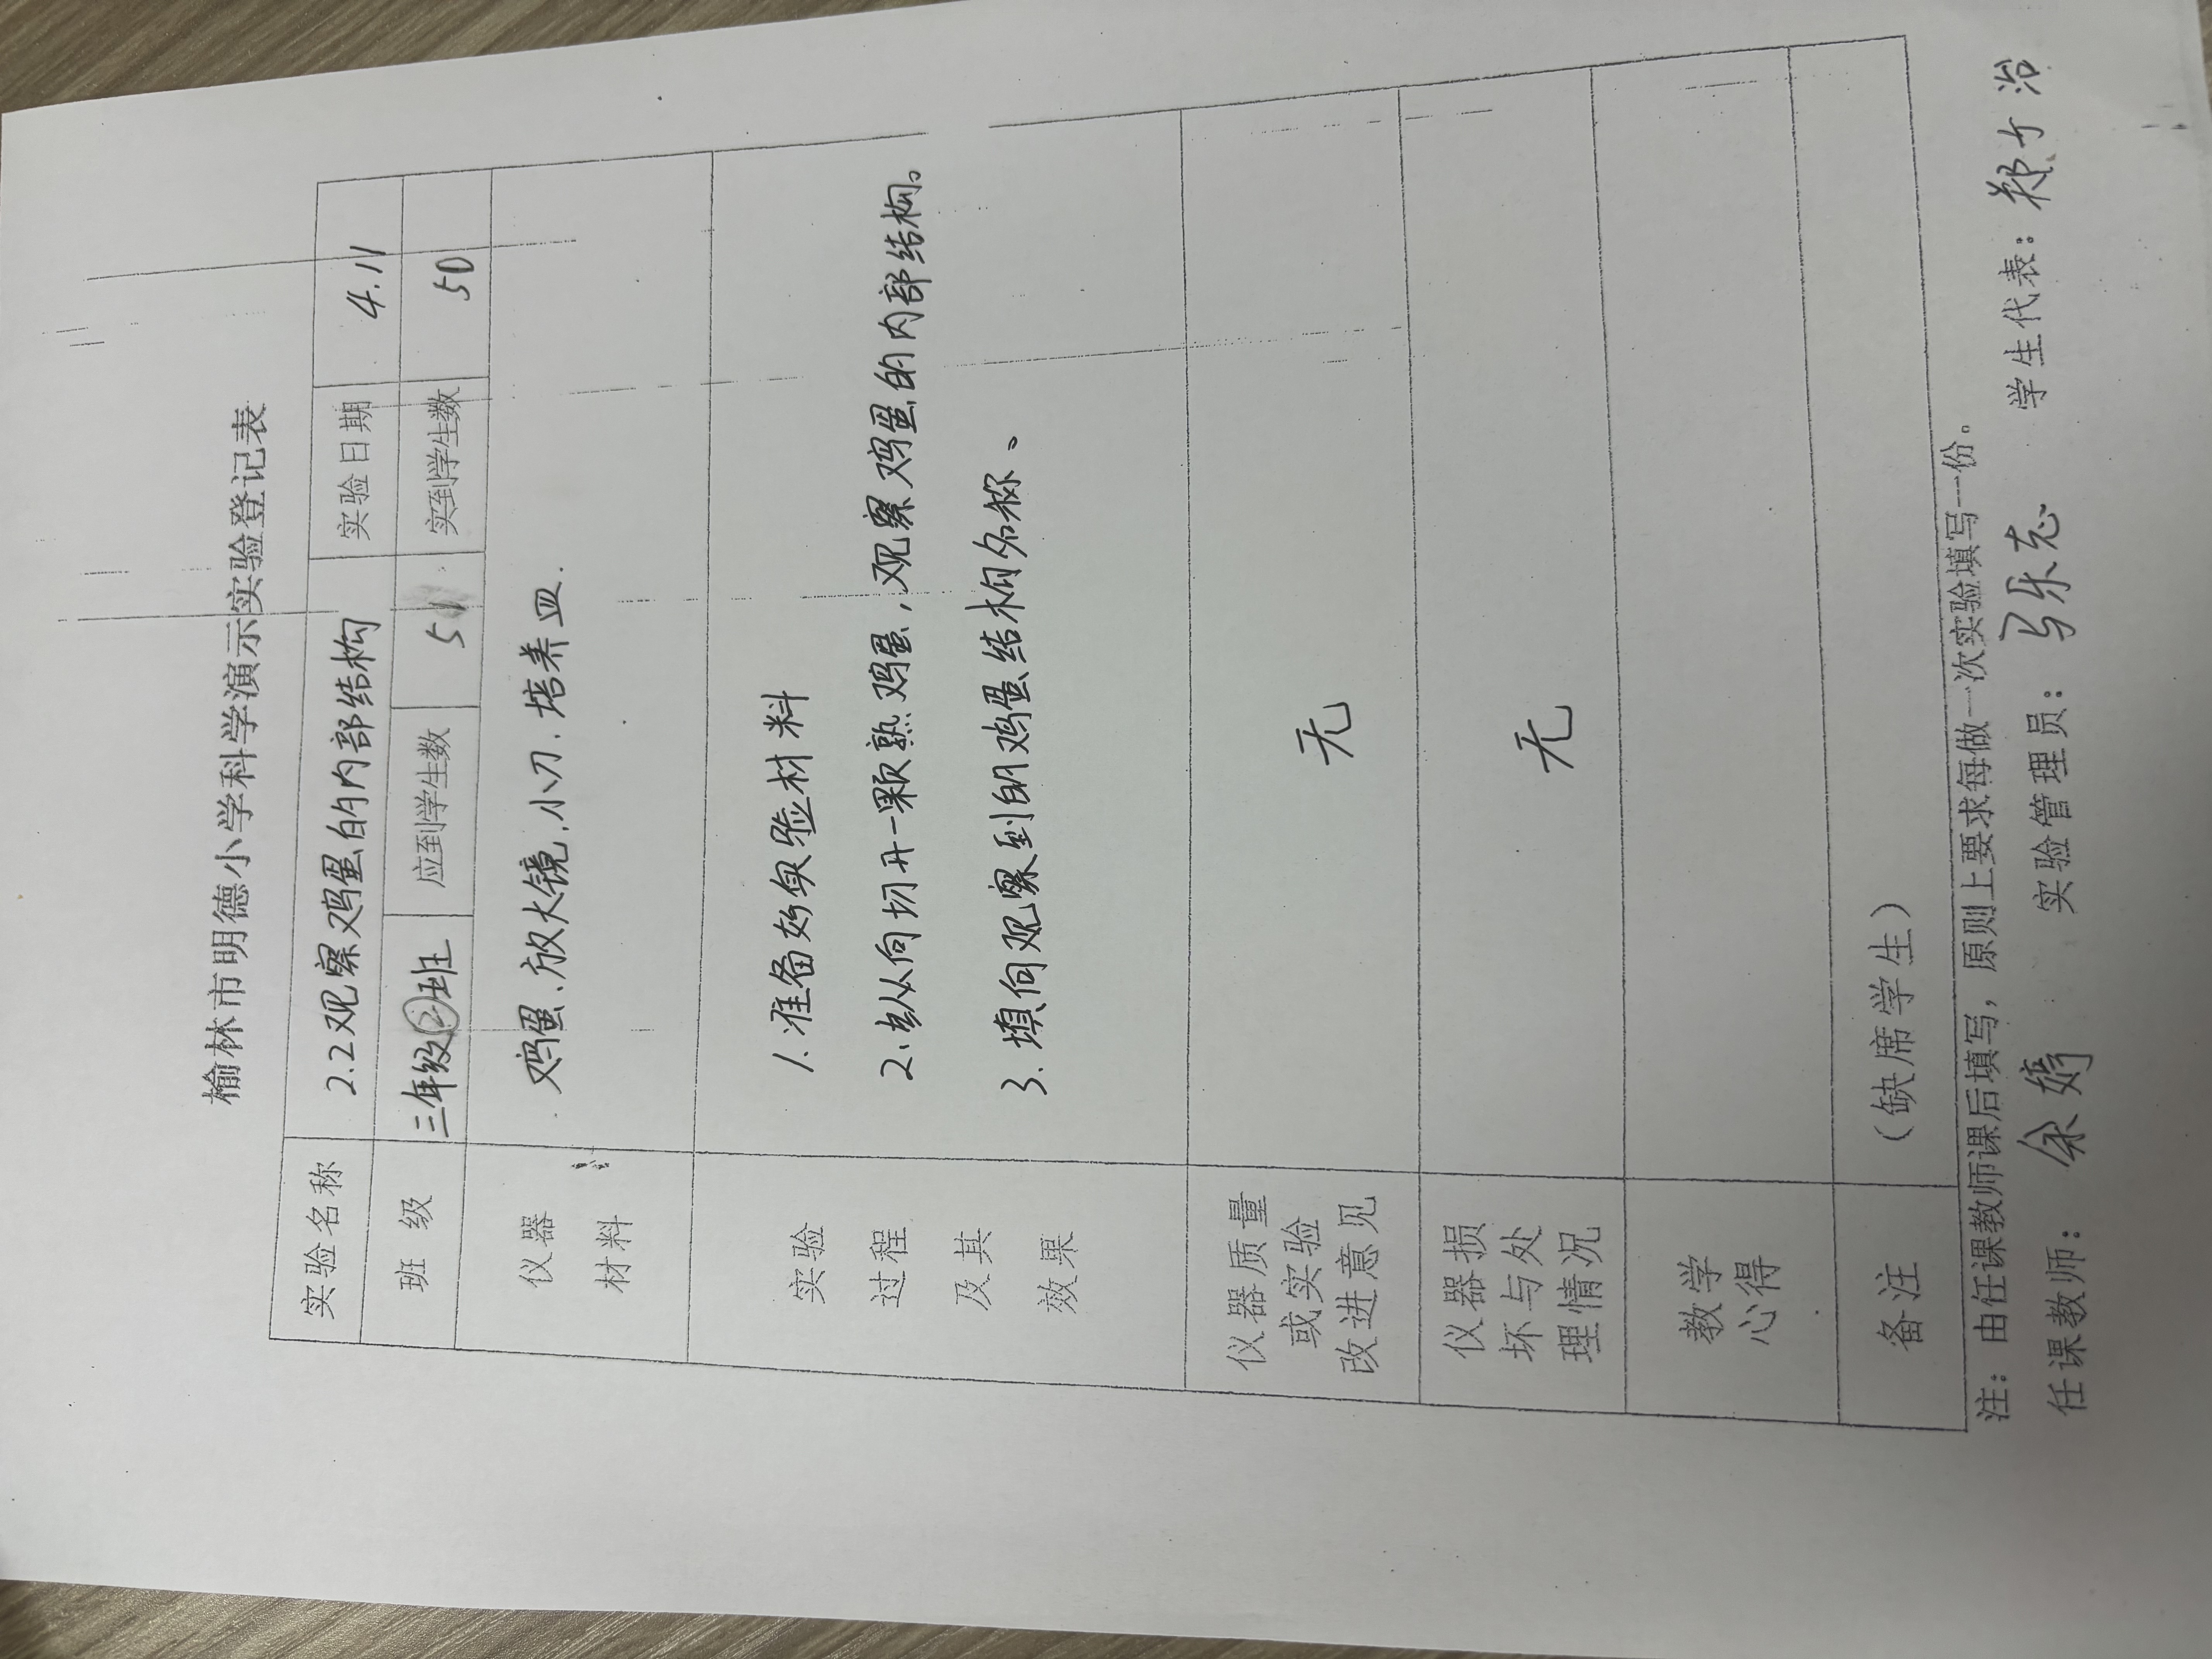 榆林市明德小学科学演示实验登记表
实验名称 2.2观察鸡蛋的内部结构 实验日期 4.11
班 级 三年级②班 应到学生数 51 实到学生数 50
仪器 鸡蛋、放大镜、小刀、培养皿.
材料
实验 1.准备好实验材料
过程 2.纵向切开一颗熟鸡蛋,观察鸡蛋的内部结构。
及其 3.填向观察到的鸡蛋结构名称、
效果
仪器质量
或实验 无
改进意见
仪器损
坏与处 无
理情况
教学
心得
备注 (缺席学生)
注：由任课教师课后填写，原则上要求每做一次实验填写一份。
任课教师： 余婷 实验管理员： 马乐志 学生代表：